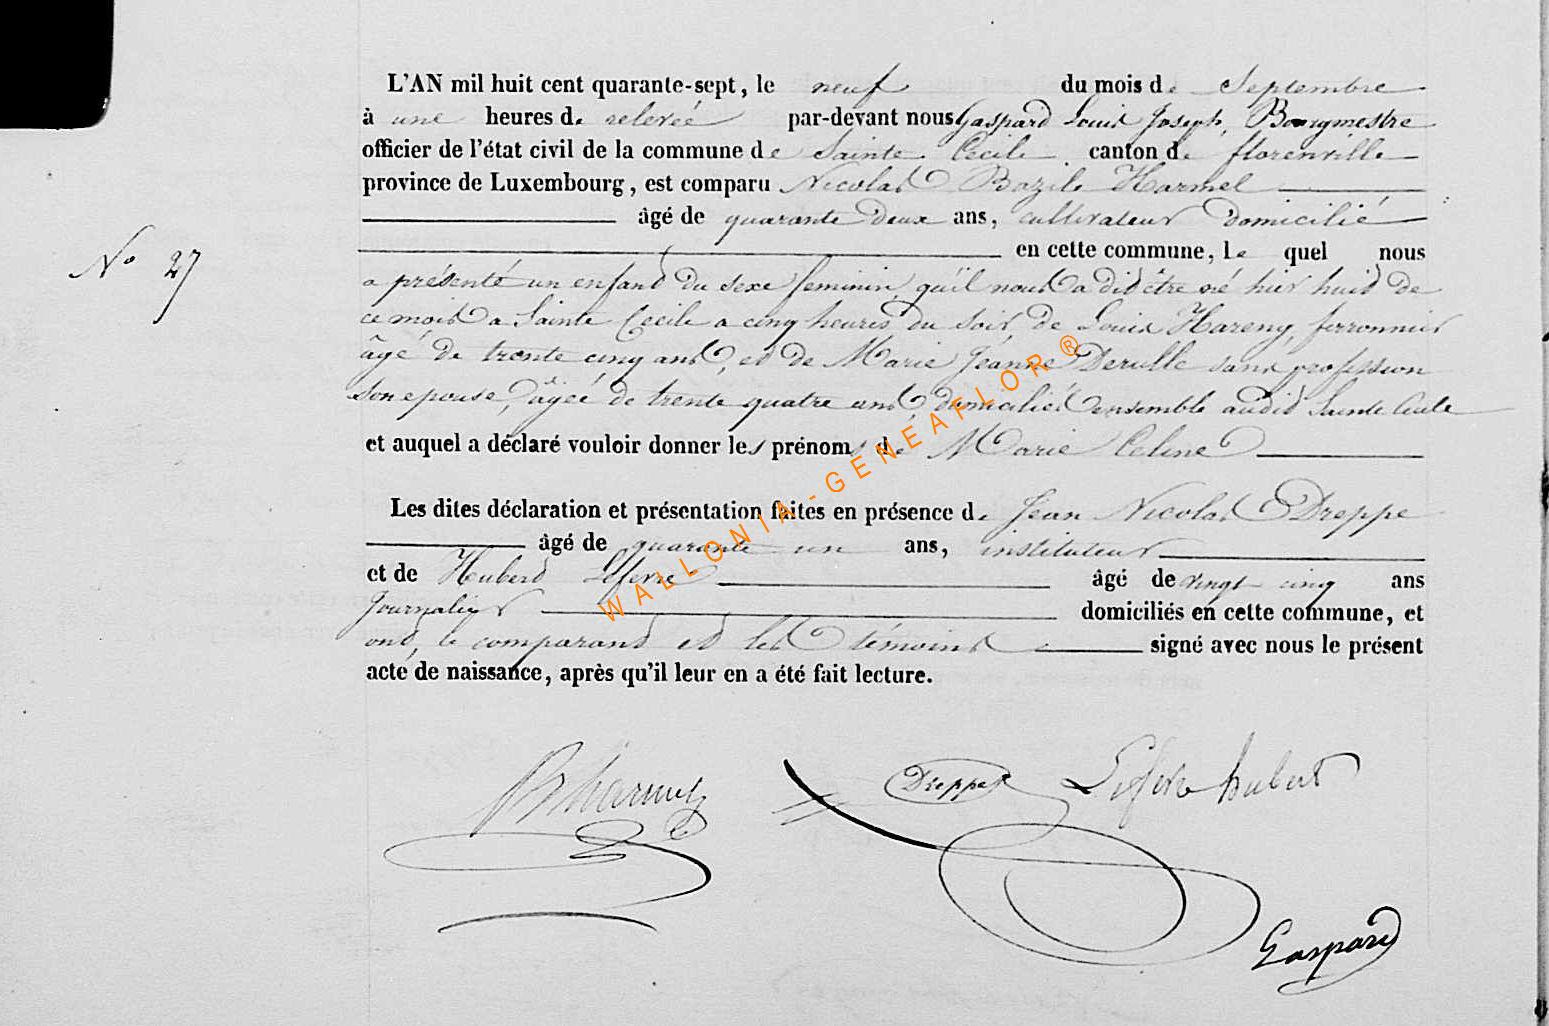 L'AN mil huit cent quarante-sept, le neuf du mois de Septembre
à une heures de relevée par-devant nous Gaspard Louis Joseph, Bourgmestre
officier de l'état civil de la commune de Sainte Cécile canton de florenville
province de Luxembourg, est comparu Nicolas Bazile Harmel
âgé de quarante deux ans, cultivateur domicilié
en cette commune, le quel nous
N° 27
a présenté un enfant du sexe feminin, qu'il nous a dit être né hier huit de
ce mois a Sainte Cecile a cinq heures du soir de Louis Hareng, ferronnier
âgé de trente cinq ans, et de Marie Jéanne Derulle sans profession
son epouse, âgée de trente quatre ans, domiciliés ensemble audit Sainte Cecile
et auquel a déclaré vouloir donner les prénoms de Marie Celine
WALLONIA-GENEAFLOR®
Les dites déclaration et présentation faites en présence de Jean Nicolas Dreppe
âgé de quarante un ans, instituteur
et de Hubert Lefevre âgé de vingt cinq ans
Journalier domiciliés en cette commune, et
ont, le comparant et les témoins signé avec nous le présent
acte de naissance, après qu'il leur en a été fait lecture.
B Harmel Dreppe Lefevre hubert
Gaspard